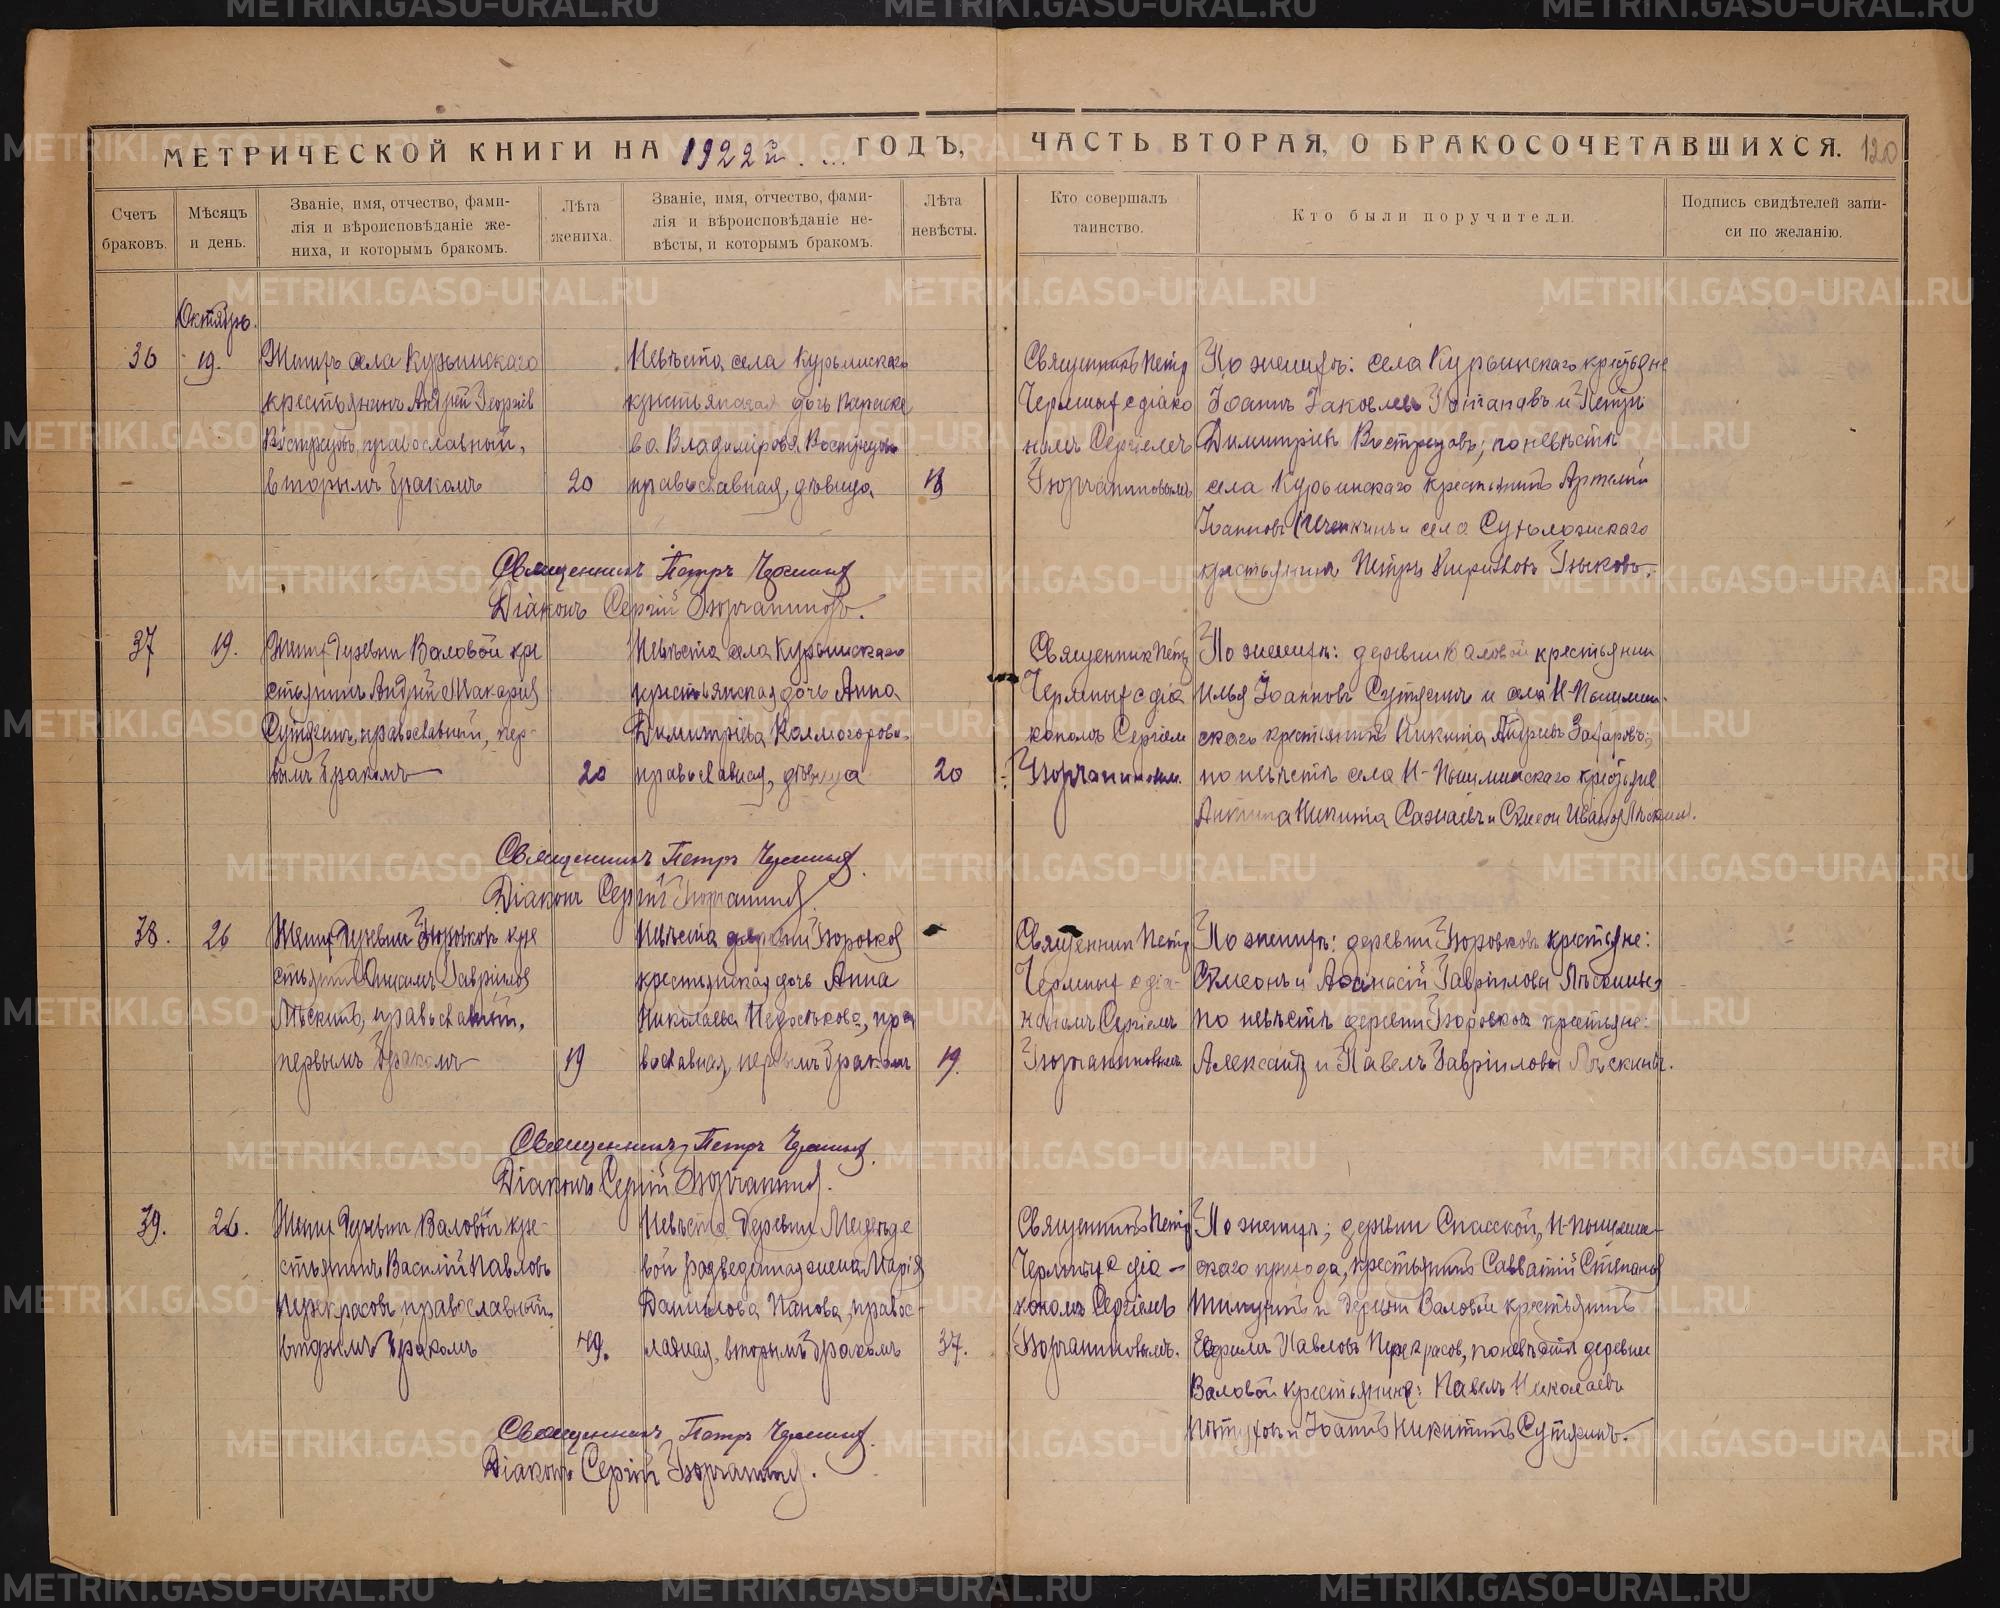 МЕТРИЧЕСКОЙ КНИГИ НА 1922й ГОДЪ, ЧАСТЬ ВТОРАЯ, О БРАКОСОЧЕТАВШИХСЯ. 120
Счетъ браковъ.
Мѣсяцъ и день.
Званіе, имя, отчество, фами-
лія и вѣроисповѣданіе же-
ниха, и которымъ бракомъ.
Лѣта жениха.
Званіе, имя, отчество, фами-
лія и вѣроисповѣданіе не-
вѣсты, и которымъ бракомъ.
Лѣта невѣсты.
Кто совершалъ таинство.
Кто были поручители.
Подпись свидѣтелей запи-
си по желанію.
Октябрь.
36
19.
Женихъ села Курьинскаго
крестьянинъ Андрей Георгіев
Востреровъ, православный,
вторымъ бракомъ
20
Невѣста села Курьинскаго
крестьянская дочь Параске
ва Владимірова
православная, дѣвица
18
Священникъ Петр
Черныхъ с діако
номъ Сергіемъ
По женихѣ: села Курьинскаго крестьяне
Іоаннъ Іаковлевъ Потаповъ и Петръ
Димитріевъ Востреровъ; по невѣстѣ
села Курьинскаго крестьянинъ Артемій
Іоанновъ и села Сухоложскаго
крестьянинъ Петръ Зыковъ.
Священникъ Петръ Черныхъ
Діаконъ Сергій
37
19.
Женихъ деревни Валовой кре
стьянинъ Андрей Макаріев
Сутягинъ, православный, пер-
вымъ бракомъ
20
Невѣста села Курьинскаго
крестьянская дочь Анна
Димитріева Колмогорова,
православная, дѣвица
20
Священник Петр
Черныхъ с діа
кономъ Сергіем
По женихѣ: деревни Валовой крестьянин
Илья Іоанновъ Сутягинъ и села Н-Пышмин-
скаго крестьянинъ Никита Андреевъ Захаровъ;
по невѣстѣ села Н-Пышминскаго крестьяне
Никита и Симеон Иванов Лѣскин.
Священникъ Петръ Черныхъ.
Діаконъ Сергій
38.
26
Женихъ деревни кре
стьянинъ Гавріилов
Лѣскинъ, православный,
первымъ бракомъ
19
Невѣста деревни
крестьянская дочь Анна
Николаева, пра
вославная, первымъ бракомъ
19.
Священник Петр
Черныхъ с діа-
кономъ Сергіемъ
По женихѣ: деревни крестьяне:
Симеонъ и Афанасій Гавріиловы Лѣскины,
по невѣстѣ деревни крестьяне:
Александр и Павелъ Гавріиловы Лѣскины.
Священникъ Петръ Черныхъ.
Діаконъ Сергій
39.
26.
Женихъ деревни Валовой кре-
стьянинъ Василій Павловъ
Перекрасовъ, православный,
вторымъ бракомъ
49.
Невѣста деревни Медвѣде
вой разведенная жена Марія
Даниилова Панова, правос-
лавная, вторымъ бракомъ
37.
Священникъ Петр
Черныхъ с діа-
кономъ Сергіемъ
По женихѣ; деревни Спасской, Н-Пышмин-
скаго прихода, крестьянинъ Савватій Степанов
и деревни Валовой крестьянинъ
Ефримъ Павловъ Перекрасов, по невѣстѣ деревни
Валовой крестьяне: Павелъ Николаевъ
Пѣтуховъ и Іоаннъ Никитинъ Сутягинъ.
Священникъ Петръ Черныхъ.
Діаконъ Сергій
METRIKI.GASO-URAL.RU